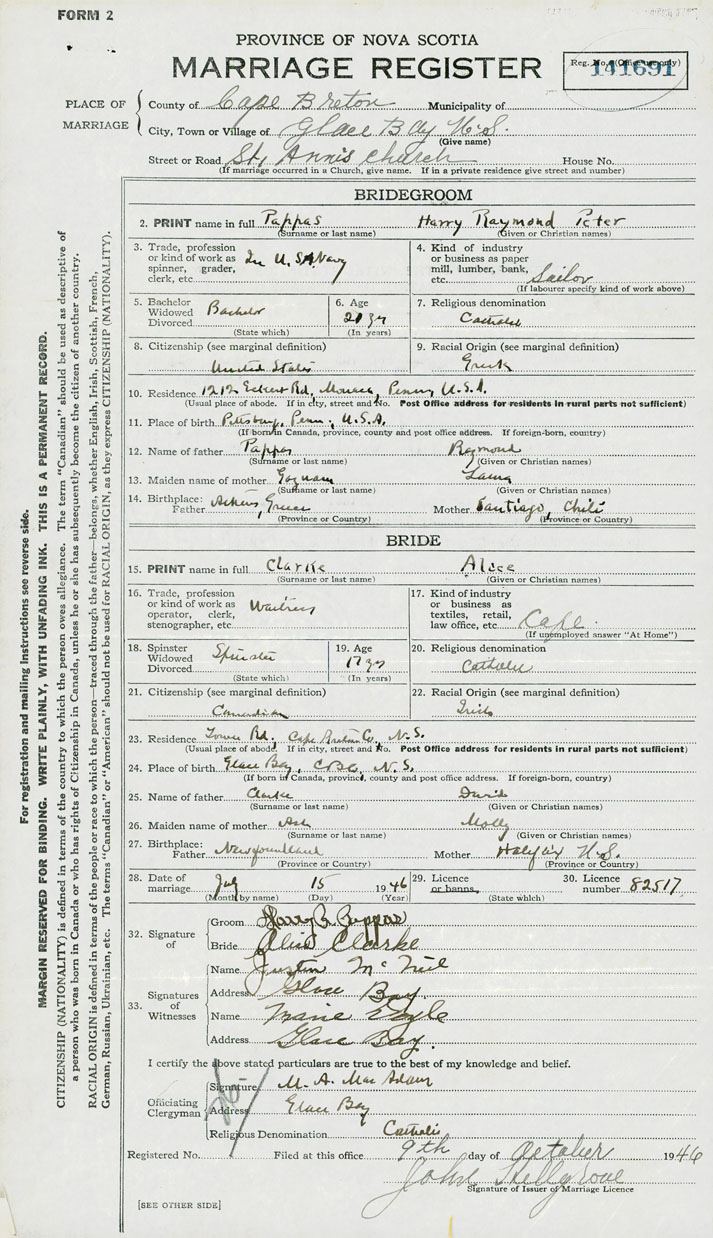 FORM 2
PROVINCE OF NOVA SCOTIA
MARRIAGE REGISTER
Reg. No. (Office use only)
141691
PLACE OF MARRIAGE
County of Cape Breton Municipality of
City, Town or Village of Glace Bay N.S.
(Give name)
Street or Road St. Ann's Church House No.
(If marriage occurred in a Church, give name. If in a private residence give street and number)
BRIDEGROOM
2. PRINT name in full Pappas Harry Raymond Peter
(Surname or last name) (Given or Christian names)
3. Trade, profession or kind of work as spinner, grader, clerk, etc. In U.S. Navy
4. Kind of industry or business as paper mill, lumber, bank, etc. Sailor
(If labourer specify kind of work above)
5. Bachelor Widowed Divorced Bachelor
(State which)
6. Age 20 yr
(In years)
7. Religious denomination
Catholic
8. Citizenship (see marginal definition)
United States
9. Racial Origin (see marginal definition)
Greek
10. Residence 1212 Rd, Penn, U.S.A.
(Usual place of abode. If in city, street and No. Post Office address for residents in rural parts not sufficient)
11. Place of birth Pittsburg, Penn, U.S.A.
(If born in Canada, province, county and post office address. If foreign-born, country)
12. Name of father Pappas Raymond
(Surname or last name) (Given or Christian names)
13. Maiden name of mother Laura
(Surname or last name) (Given or Christian names)
14. Birthplace: Father Athens, Greece Mother Santiago, Chili
(Province or Country) (Province or Country)
BRIDE
15. PRINT name in full Clarke Alice
(Surname or last name) (Given or Christian names)
16. Trade, profession or kind of work as operator, clerk, stenographer, etc. Waitress
17. Kind of industry or business as textiles, retail, law office, etc. Cafe
(If unemployed answer "At Home")
18. Spinster Widowed Divorced Spinster
(State which)
19. Age 17 yr
(In years)
20. Religious denomination
Catholic
21. Citizenship (see marginal definition)
Canadian
22. Racial Origin (see marginal definition)
Irish
23. Residence Tower Rd. Cape Breton Co., N.S.
(Usual place of abode. If in city, street and No. Post Office address for residents in rural parts not sufficient)
24. Place of birth Glace Bay, C.B.Co., N.S.
(If born in Canada, province, county and post office address. If foreign-born, country)
25. Name of father Clarke David
(Surname or last name) (Given or Christian names)
26. Maiden name of mother Ash Molly
(Surname or last name) (Given or Christian names)
27. Birthplace: Father Newfoundland Mother Halifax N.S.
(Province or Country) (Province or Country)
28. Date of marriage July 15 1946
(Month by name) (Day) (Year)
29. Licence or banns
(State which)
30. Licence number 82517
32. Signature of
Groom Harry R. Pappas
Bride Alice Clarke
33. Signatures of Witnesses
Name Justin McNeil
Address Glace Bay.
Name Marie
Address Glace Bay.
I certify the above stated particulars are true to the best of my knowledge and belief.
Officiating Clergyman
Signature M. A. MacAdam
Address Glace Bay
Religious Denomination Catholic
Registered No. Filed at this office 9th day of October 1946
John
Signature of Issuer of Marriage Licence
[SEE OTHER SIDE]
For registration and mailing instructions see reverse side.
MARGIN RESERVED FOR BINDING. WRITE PLAINLY, WITH UNFADING INK. THIS IS A PERMANENT RECORD.
CITIZENSHIP (NATIONALITY) is defined in terms of the country to which the person owes allegiance. The term "Canadian" should be used as descriptive of
a person who was born in Canada or who has rights of Citizenship in Canada, unless he or she has subsequently become the citizen of another country.
RACIAL ORIGIN is defined in terms of the people or race to which the person—traced through the father—belongs, whether English, Irish, Scottish, French,
German, Russian, Ukrainian, etc. The terms "Canadian" or "American" should not be used for RACIAL ORIGIN, as they express CITIZENSHIP (NATIONALITY).